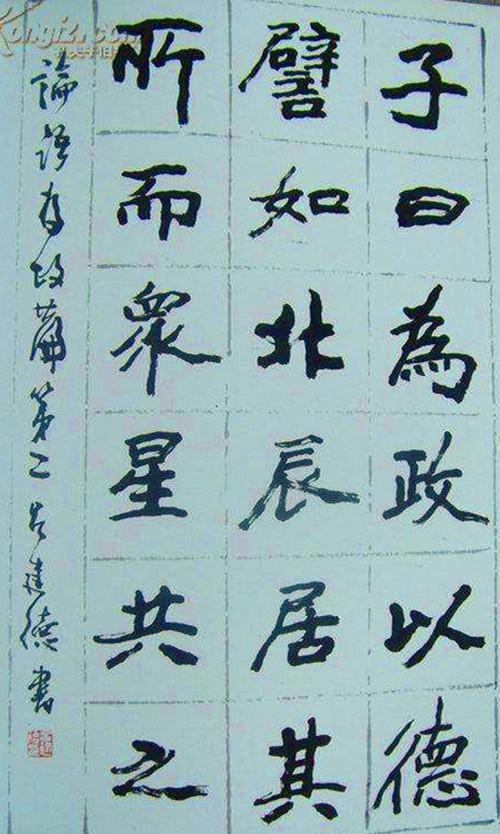 Kongfz.com
子曰為政以德
譬如北辰居其
所而衆星共之
論語為政篇第二建德書